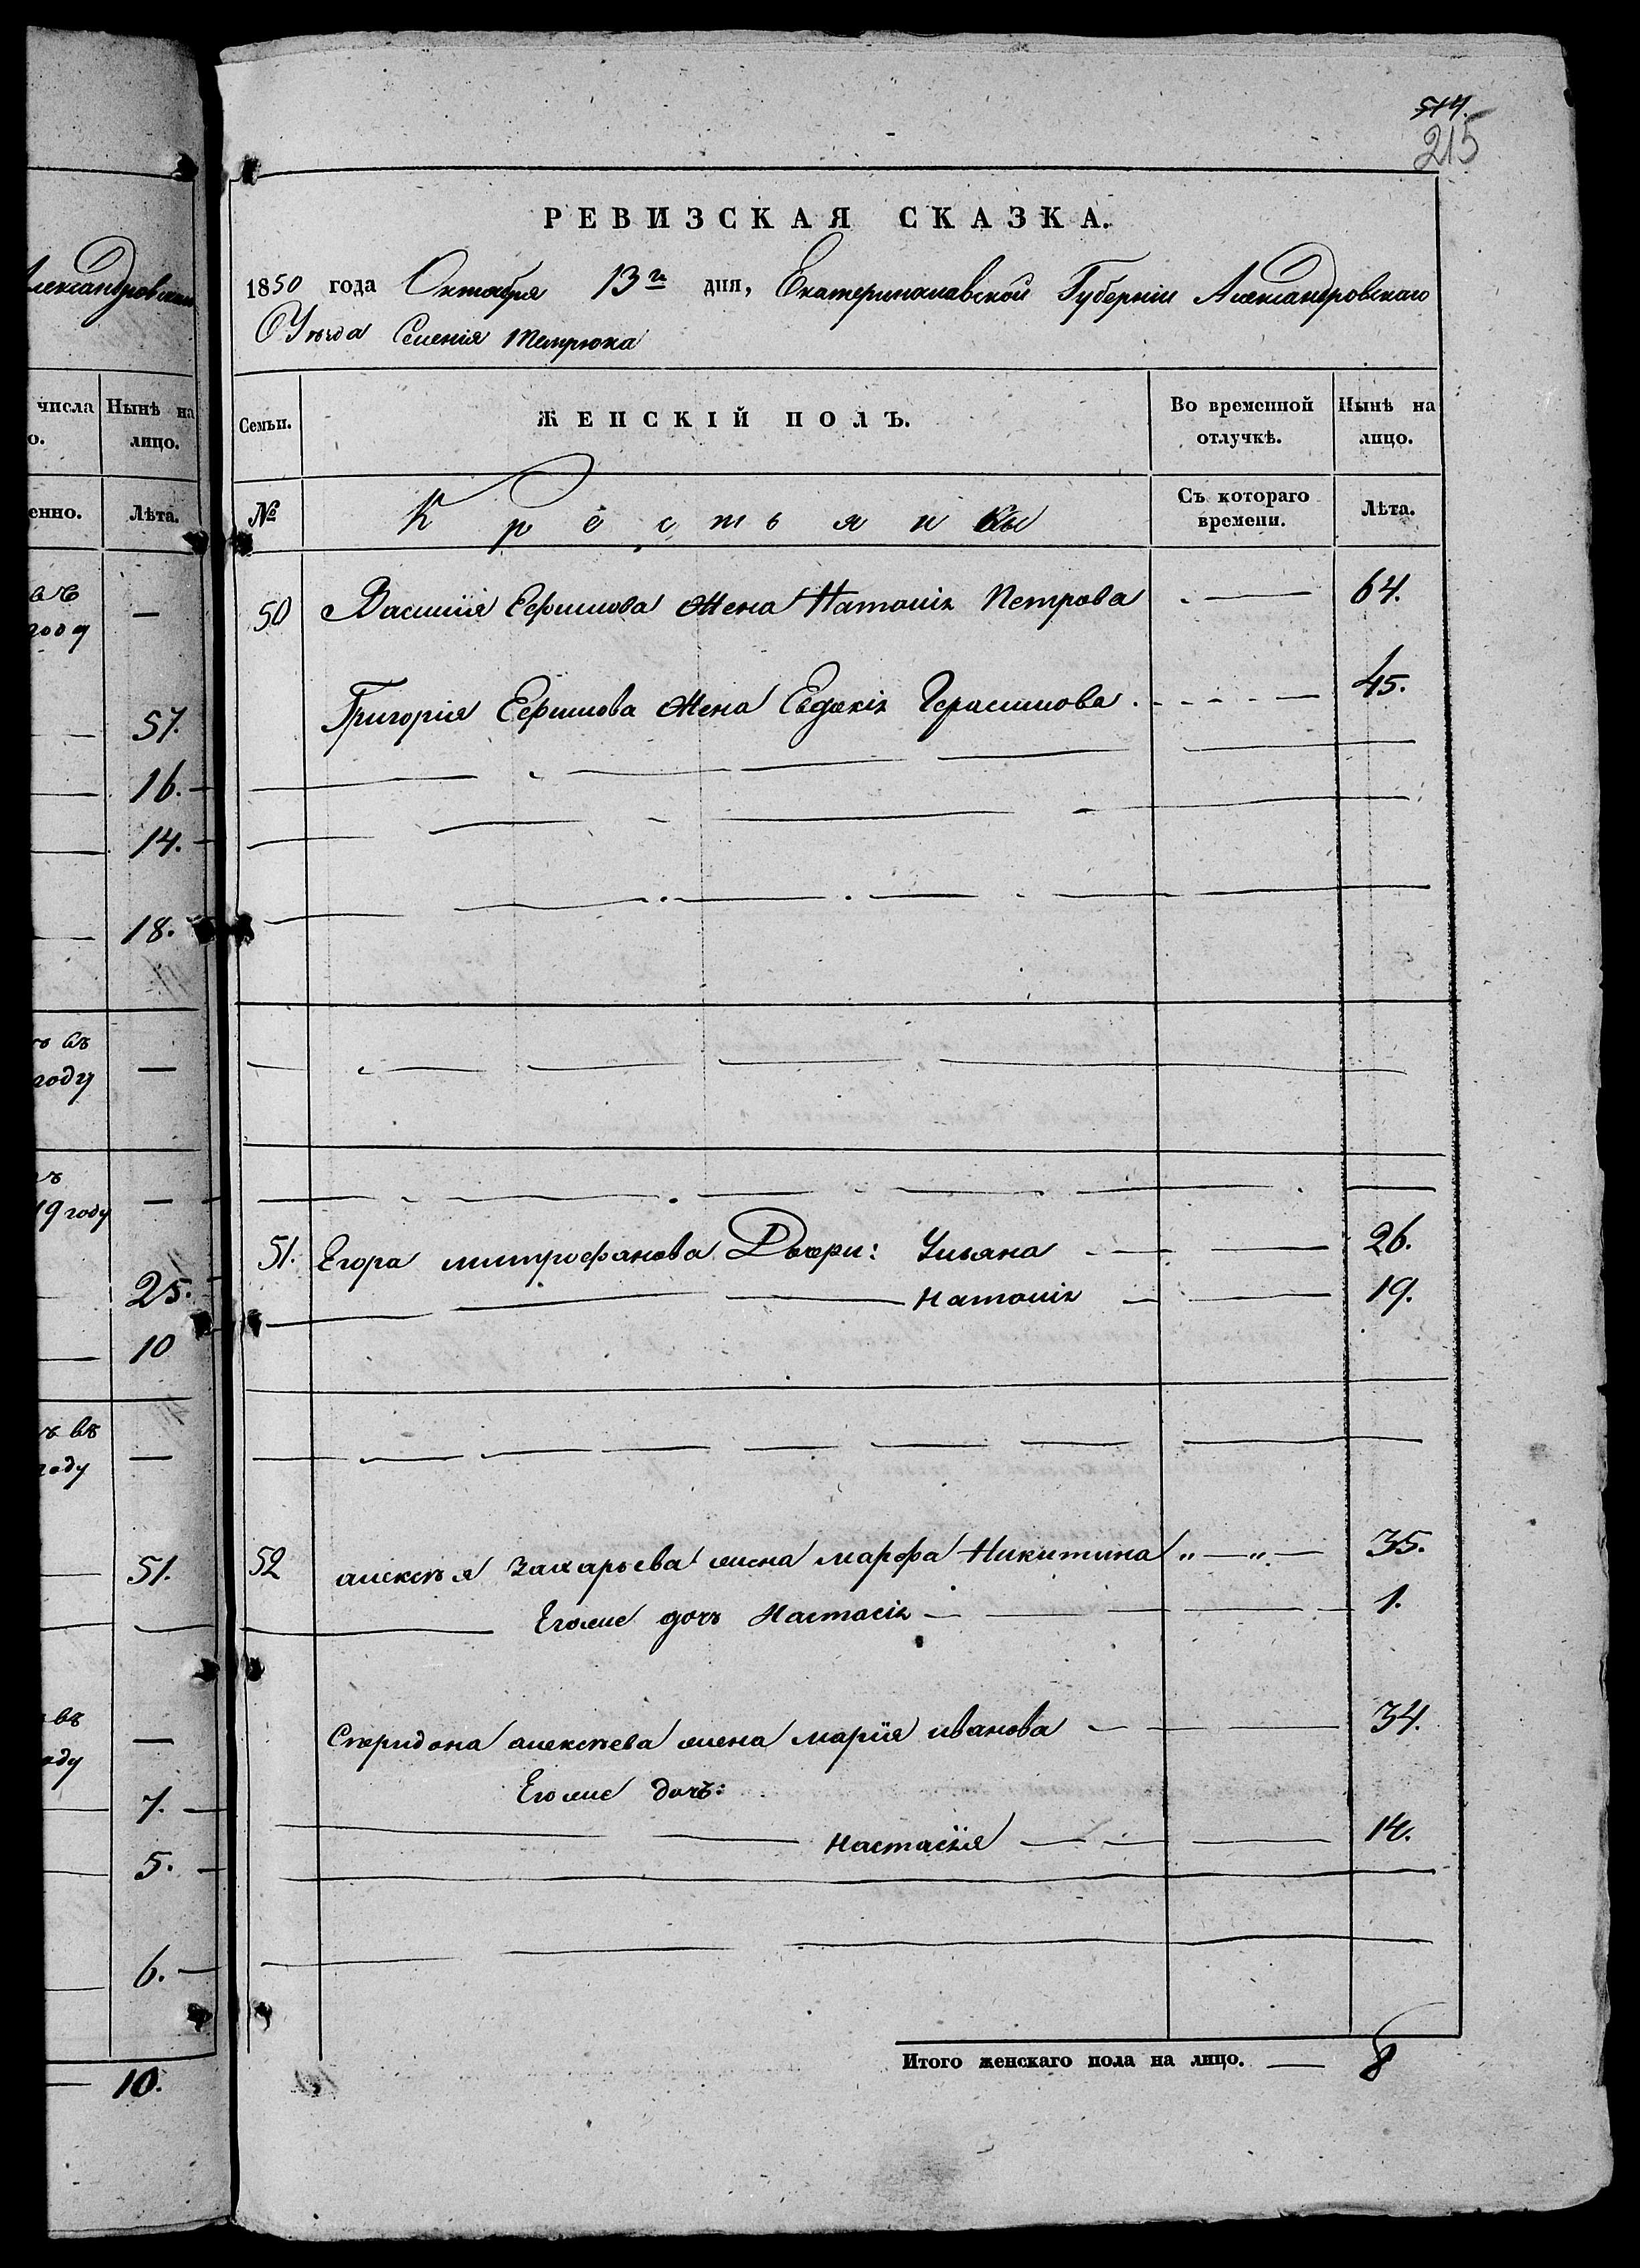 514.
215
лександровскаго
числа Нынѣ на
о. лицо.
енно. Лѣта.
въ
году —
57.
16.
14.
18.
ъ въ
году —
ъ
19 году —
25.
10
ъ въ
году —
51.
въ
оду —
7.
5.
6.
10.
РЕВИЗСКАЯ СКАЗКА.
1850 года Октября 13го дня, Екатеринославской Губерніи Александровскаго
Уѣзда Селенія Темрюка
Семьи. ЖЕНСКІЙ ПОЛЪ. Во временной отлучкѣ. Нынѣ на лицо.
№ Крестьянки Съ котораго времени. Лѣта.
50 Василія Ефимова Жена Наталія Петрова — 64.
Григорія Ефимова Жена Евдокія Герасимова — 45.
51. Егора митрофанова Дочери: Ульяна — 26.
Наталія — 19.
52 алексѣя Захарьева жена марфа Никитина „—„— 35.
Егоже дочь Настасія — 1.
Спиридона алексѣева жена марія иванова — 34.
Егоже дочь:
Настасія — 14.
Итого женскаго пола на лицо. — 8